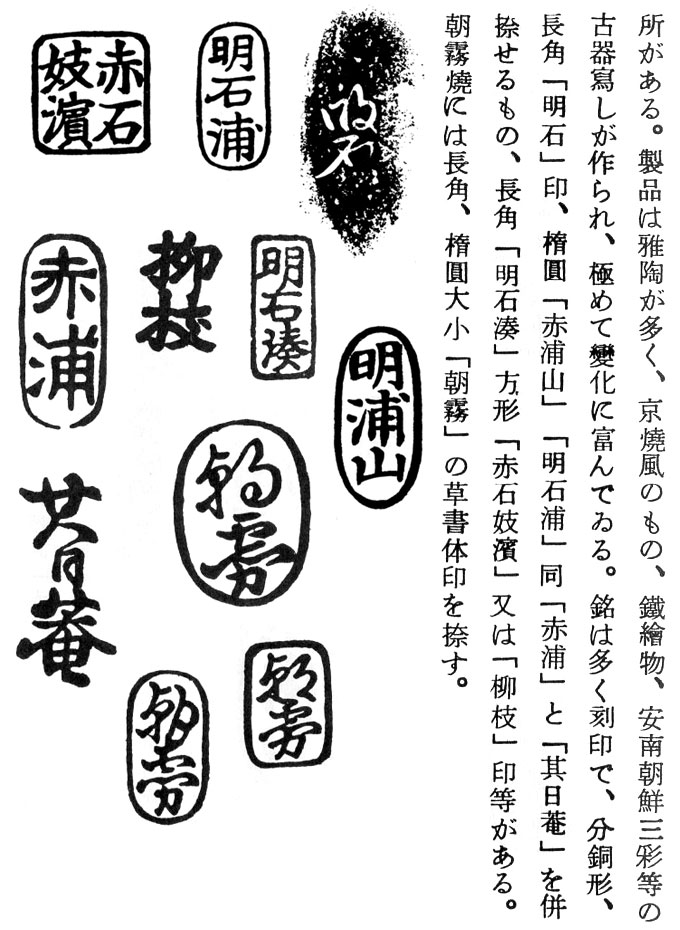 所がある。製品は雅陶が多く、京燒風のもの、鐵繪物、安南朝鮮三彩等の
古器寫しが作られ、極めて變化に富んでゐる。銘は多く刻印で、分銅形、
長角「明石」印、楕圓「赤浦山」「明石浦」同「赤浦」と「其日菴」を併
捺せるもの、長角「明石湊」方形「赤石妓濱」又は「柳枝」印等がある。
朝霧燒には長角、楕圓大小「朝霧」の草書体印を捺す。
明石
明石浦
赤石
妓濱
明浦山
明石湊
柳枝
赤浦
朝霧
其日菴
朝霧
朝霧